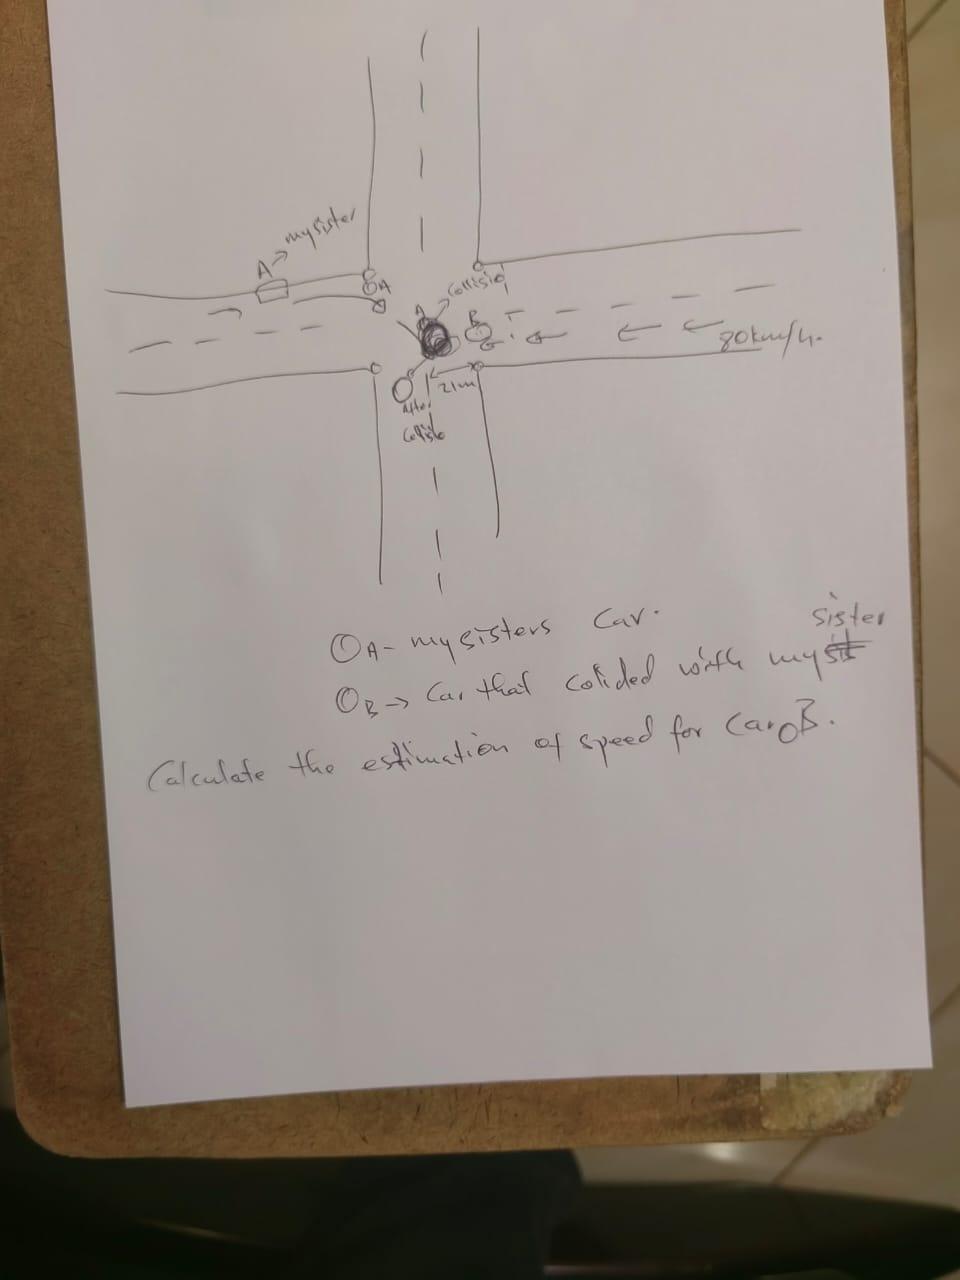 my sister
A
A
Collision
A
B
80km/h.
21m
After
Collisio
O A- my sisters Car.
sister
O B → Car that colided with my
Calculate the estimation of speed for Car O B.